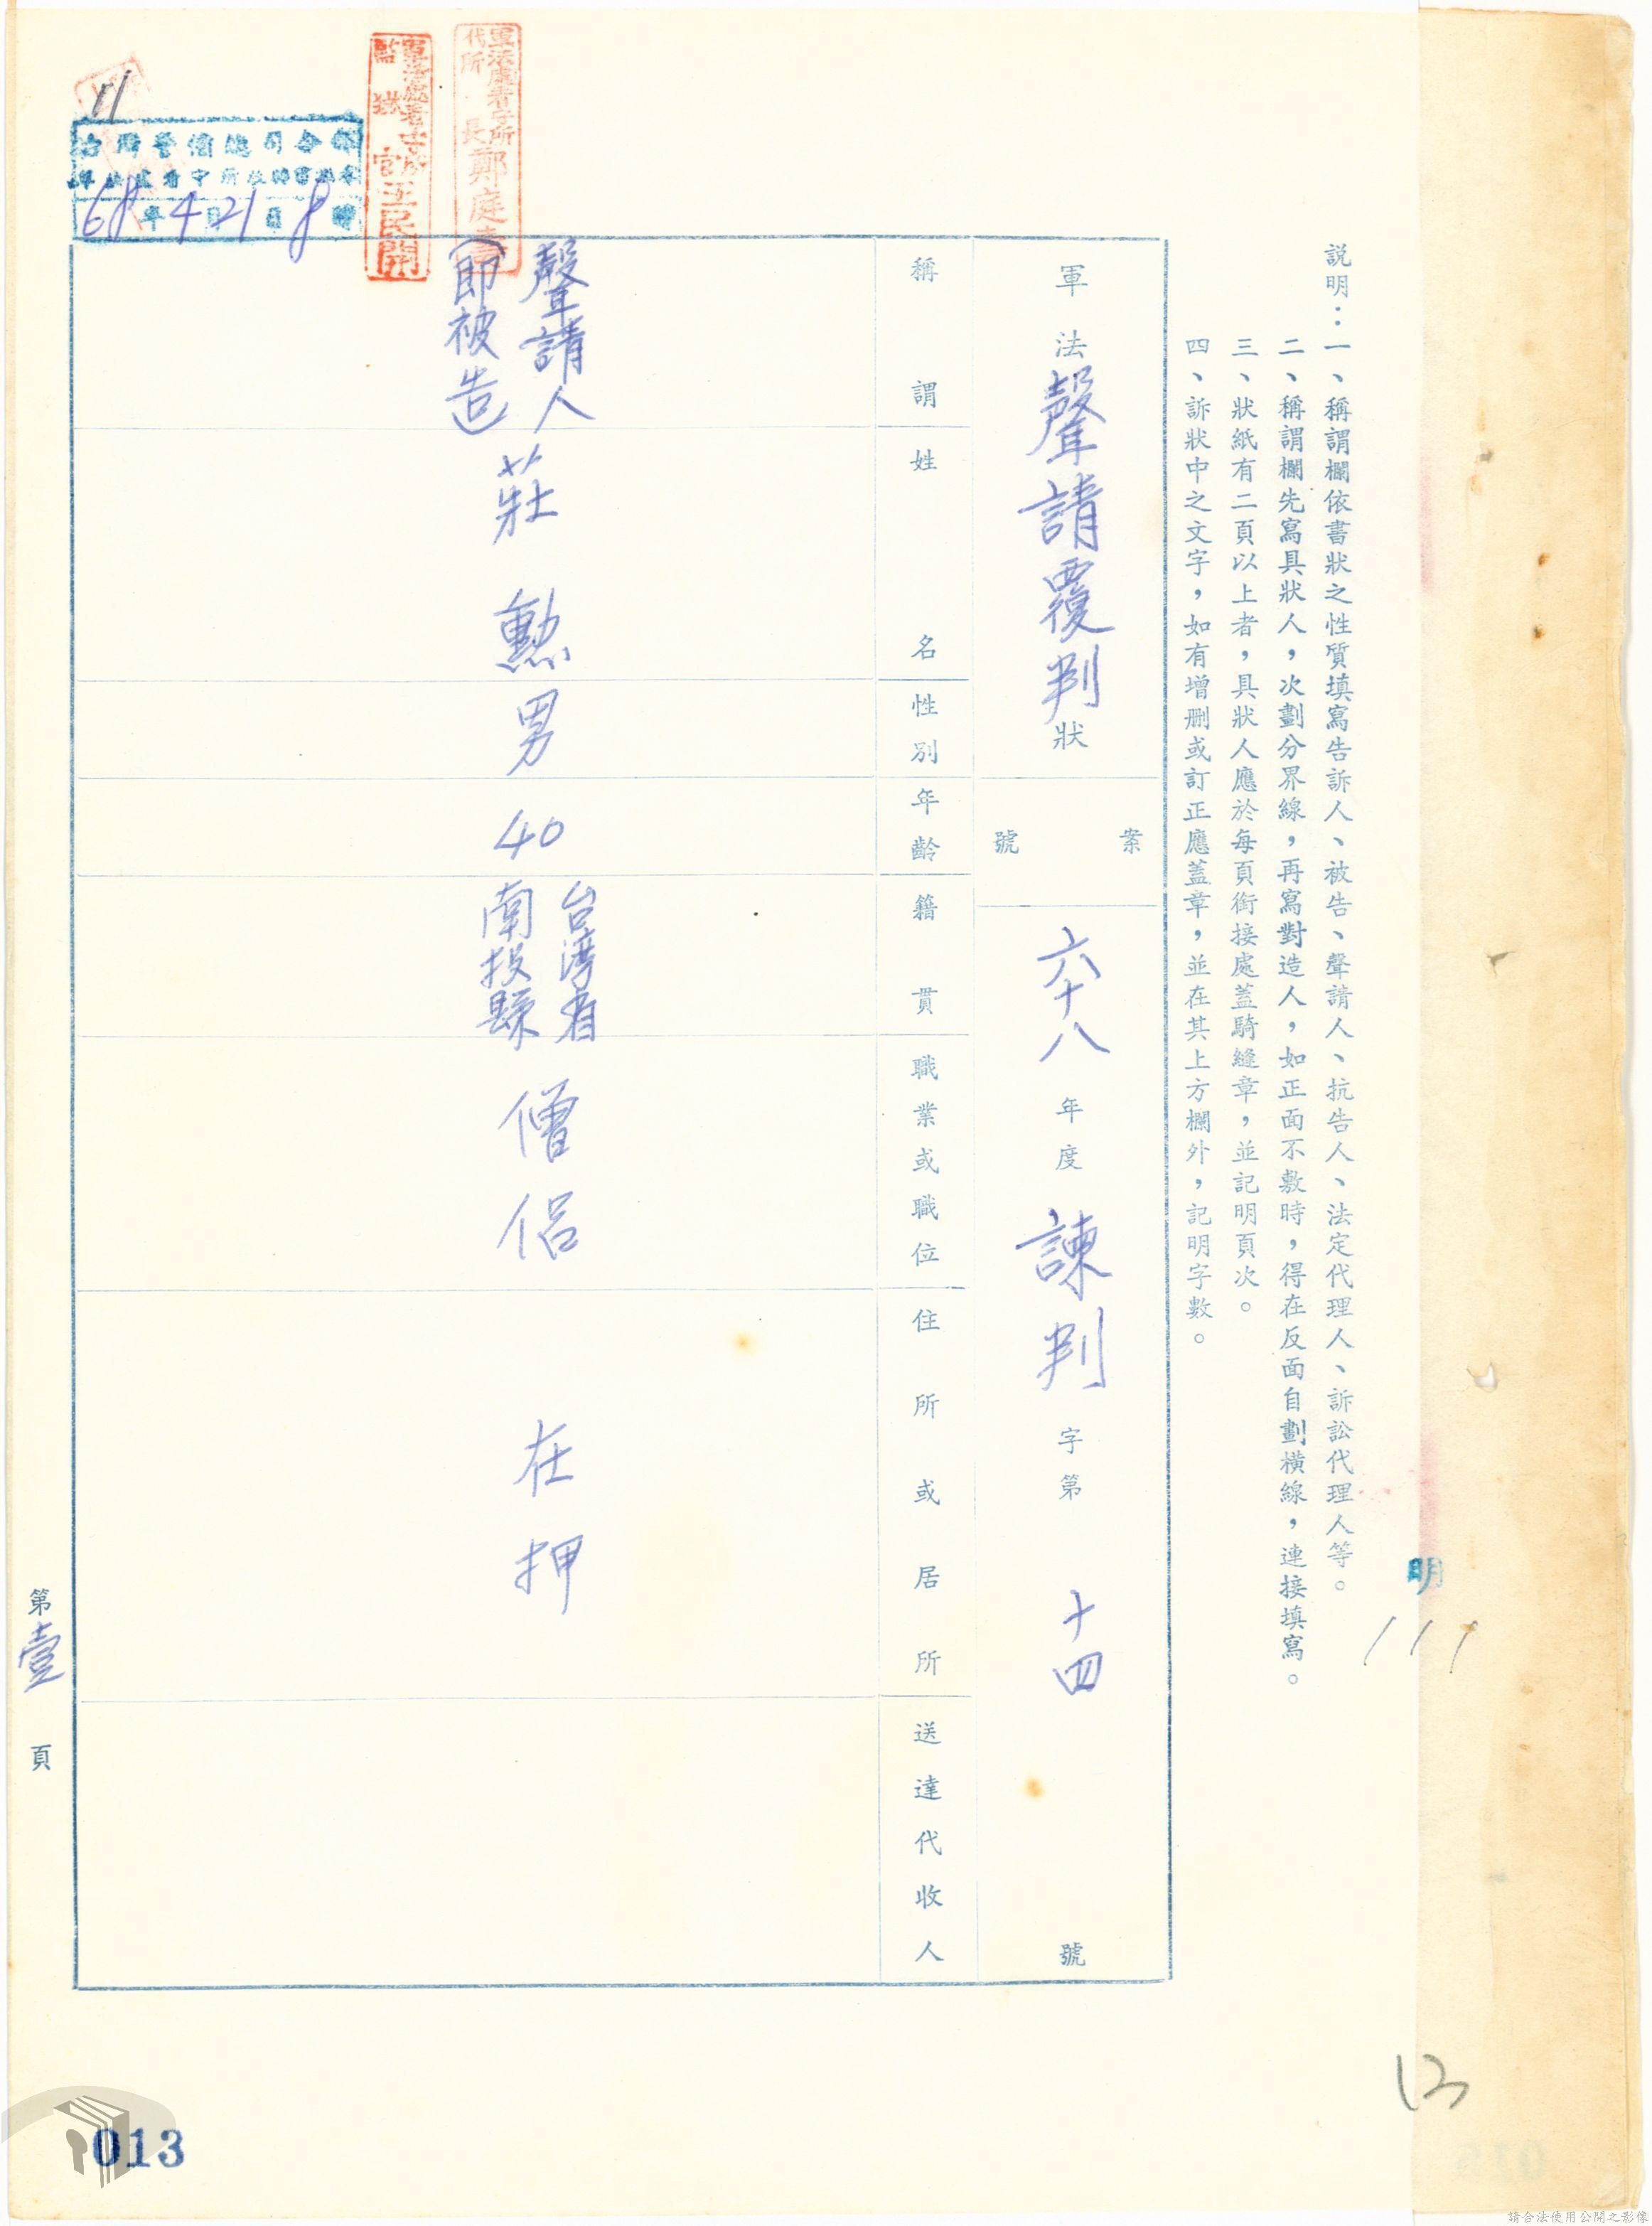 說明：一、稱謂欄依書狀之性質填寫告訴人、被告、聲請人、抗告人、法定代理人、訴訟代理人等。
二、稱謂欄先寫具狀人，次劃分界線，再寫對造人，如正面不敷時，得在反面自劃橫線，連接填寫。
三、狀紙有二頁以上者，具狀人應於每頁銜接處蓋騎縫章，並記明頁次。
四、訴狀中之文字，如有增刪或訂正應蓋章，並在其上方欄外，記明字數。
軍法聲請覆判狀
案號
六十八年度諫判字第十四號
稱謂
姓名
性別
年齡
籍貫
職業或職位
住所或居所
送達代收人
聲請人
(即被告)
莊勲
男
40
台湾省
南投縣
僧侶
在押
軍法處看守所
代所長鄭庭
軍法處看守所
監獄官王民開
台灣警備總司令部
68年4月21日8時
11
第壹頁
明
111
13
013
請合法使用公開之影像